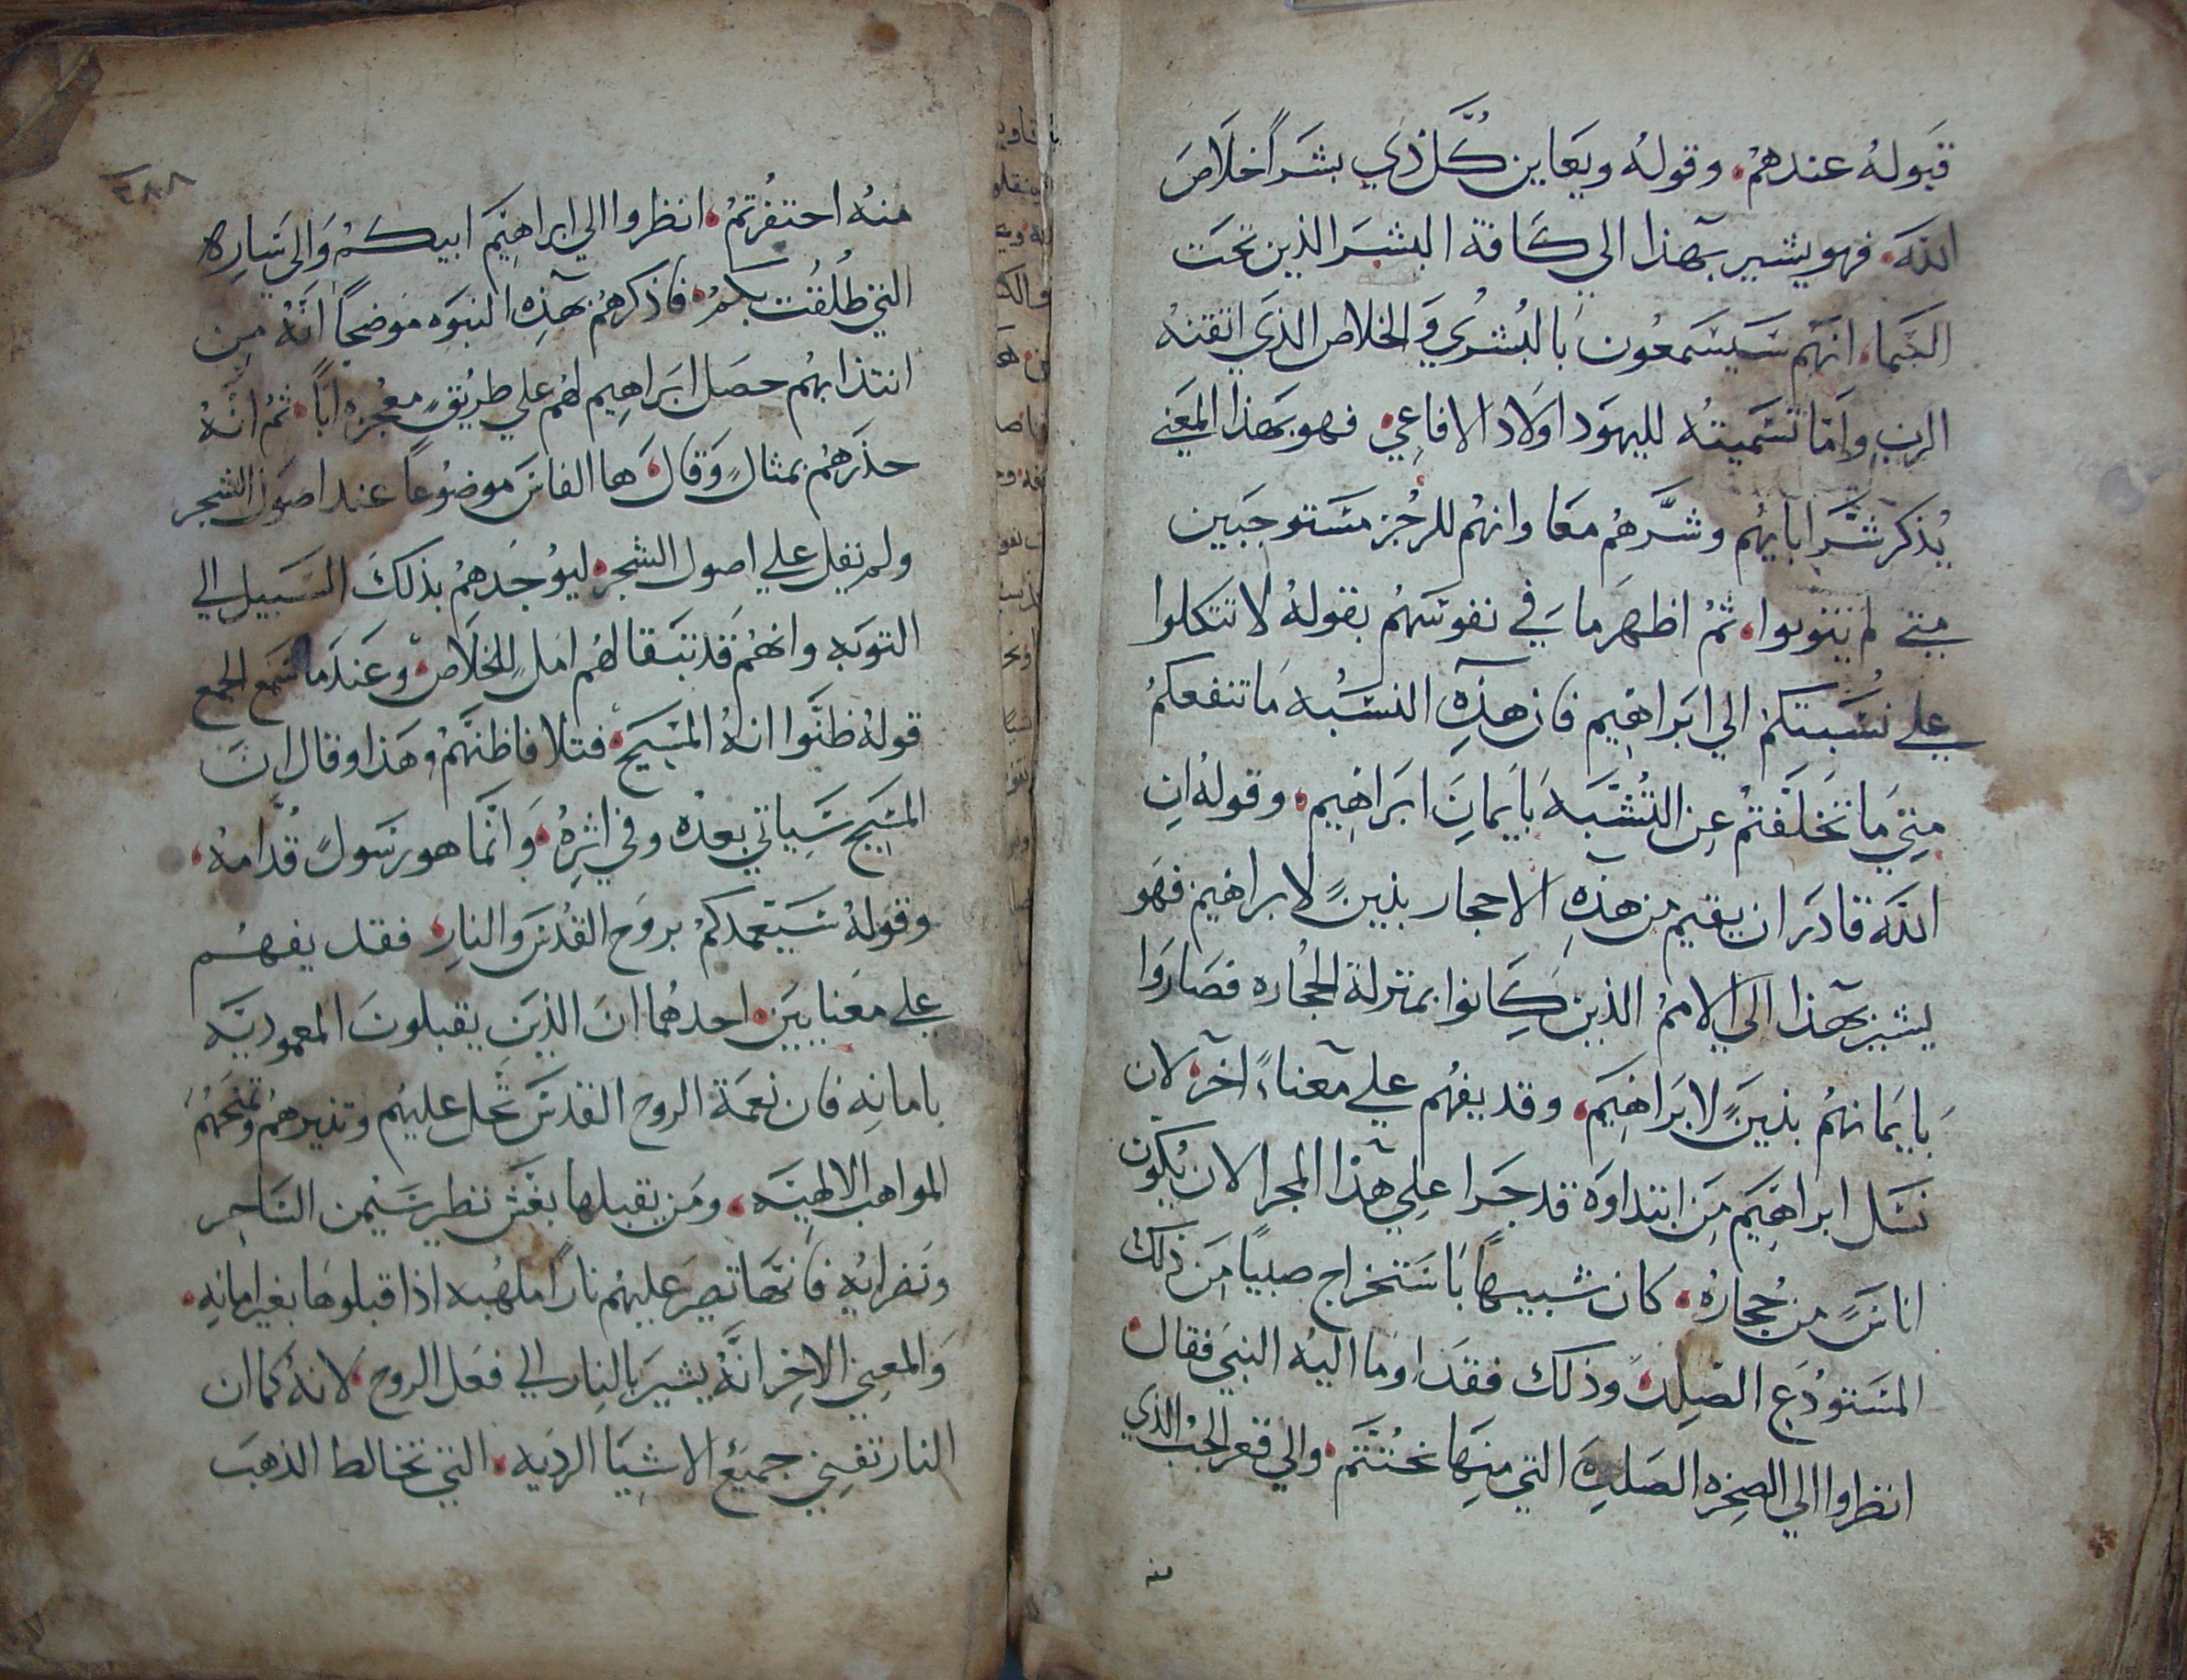 قبوله عندهم، وقوله ويعاين كل ذي بشراً خلاص
الله، فهو يشير بهذا الي كافة البشر الذين تحت
السما، انهم سيسمعون بالبشري والخلاص الذي اتقنه
الرب واما تسميته لليهود اولاد الافاعي، فهو بهذا المعني
يذكر شر ابايهم وشرهم معا وانهم للرجز مستوجبين
متي لم يتوبوا، ثم اظهر ما في نفوسهم بقوله لا تتكلوا
علي نسبتكم الي ابراهيم فان هذه النسبه ما تنفعكم
متي ما تخلفتم عن التشبه بايمان ابراهيم، وقوله ان
الله قادر ان يقيم من هذه الاحجار بنين لابراهيم فهو
يشير بهذا الي الامم الذين كانوا بمنزلة الحجاره فصاروا
بايمانهم بنين لابراهيم، وقد يفهم علي معناء اخر، لان
نسل ابراهيم من ابتداوه قد جرا علي هذا المجرا لان يكون
اناس من حجاره، كان شبيها باستخراج صبيا من ذلك
المستودع الصلد، وذلك فقد اوما اليه النبي فقال،
انظروا الي الصخره الصلده التي منها نحتتم، والي قعر الجب الذي
منه
٣٨٨
منه احتفرتم، انظروا الي ابراهيم ابيكم والي ساره
التي طلقت بكم، فاذكرهم بهذه النبوه موضحاً انه من
ابتدا بهم حصل ابراهيم لهم علي طريق معجزه اباً، ثم انه
حذرهم بمثال وقال، ها الفاس موضوعاً عند اصول الشجر
ولم يقل علي اصول الشجر، ليوجدهم بذلك السبيل الي
التوبه وانهم قد تبقا لهم امل للخلاص، وعندما سمع الجمع
قوله ظنوا انه المسيح، فتلافا ظنهم وهذا وقال ان
المسيح سياتي بعده وفي اثره، وانما هو رسول قدامه،
وقوله سيعمدكم بروح القدس والنار، فقد يفهم
علي معنايين، احدهما ان الذين يقبلون المعموديه
بامانه فان نعمة الروح القدس تحل عليهم وتنيرهم وتمنحهم
المواهب الالهيه، ومن يقبلها بغش نظير سيمن الساحر
ونضرايه فانها تصير عليهم ناراً ملهبه اذا قبلوها بغير امانه،
والمعني الاخر انه يشير بالنار الي فعل الروح، لانه كما ان
النار تفني جميع الاشيا الرديه، التي تخالط الذهب